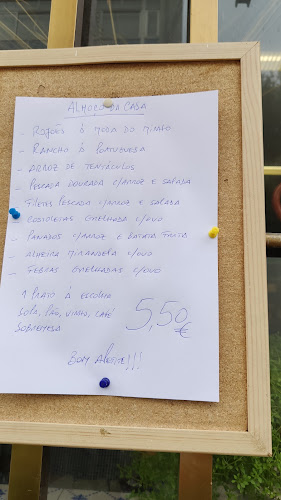 ALMOÇO DA CASA
- ROJÕES À MODA DO MINHO
- RANCHO À PORTUGUESA
- ARROZ DE TENTÁCULOS
- PESCADA DOURADA C/ARROZ E SALADA
- FILETES PESCADA C/ARROZ E SALADA
- COSTELETAS GRELHADA C/OVO
- PANADOS C/ARROZ E BATATA FRITA
- ALHEIRA MIRANDELA C/OVO
- FEBRAS GRELHADAS C/OVO
1 PRATO À ESCOLHA
SOPA, PÃO, VINHO, CAFÉ
SOBREMESA
5,50 €
BOM APETITE!!!